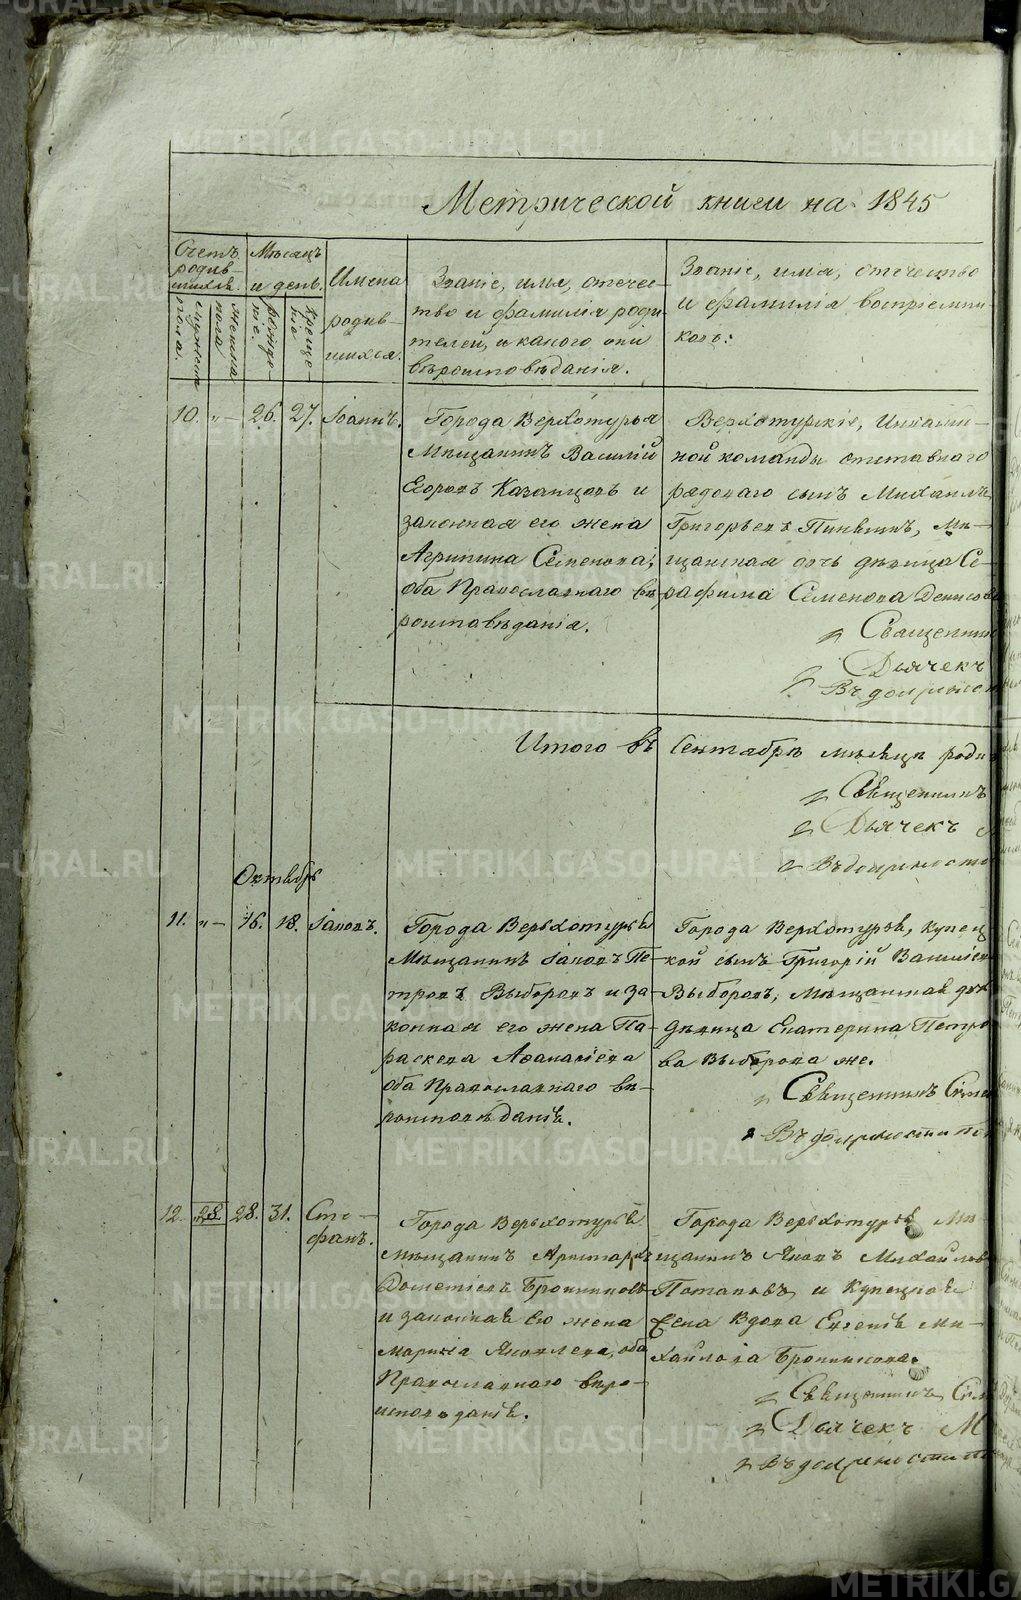 Метрической книги на 1845
Счетъ родив- шихся.
Мѣсяцъ и день.
Имена родив- шихся.
Званіе, имя, отечес-
тво и фамилія роди-
телей, и какого они
вѣроисповѣданія.
Званіе, имя, отечество
и фамилія воспріемни-
ковъ:
мужеска пола.
женска пола
рожде- нiе.
креще- нiе
10. „ — 26. 27. Іоаннъ.
Города Верхотурья
Мѣщанинъ Василій
Егоровъ Казанцовъ и
законная его жена
Агрипина Семенова;
оба Православнаго вѣ-
роисповѣданія.
Верхотурскіе, Инвалид-
ной команды отставнаго
рядоваго сынъ Михаилъ
Григорьевъ, Мѣ-
щанская дочь дѣвица Се-
рафима Семенова Денисова
Священник
Дьячекъ
Въ должнос
Итого въ Сентябрѣ мѣсяцѣ роди
Священникъ
Дьячекъ М
Въ должности
Октябрь
11. „ — 16. 18. Іаковъ.
Города Верхотурья
Мѣщанинъ Іаковъ Пе-
тровъ Выборовъ и за-
конная его жена Па-
раскева Аѳанасіева
оба Православнаго вѣ-
роисповѣданія.
Города Верхотурья, купец-
кой сынъ Григорій Василіев
Выборовъ, Мѣщанская
дѣвица Екатерина Петро-
ва Выборова же.
Священникъ Симе
Въ должности
12. 28. 31. Сте-
фанъ.
Города Верхотурья
мѣщанинъ Аристархъ
Дометіевъ Бронниковъ
и законная его жена
Марія Яковлева, оба
Православнаго вѣро-
исповѣданія.
Города Верхотурья Мѣ-
щанинъ Яковъ Михайлов
Потаповъ и Купецкая
Вдова Евгенія Ми-
хайлова Бронникова.
Священникъ Сим
Дьячекъ М
Въ должности
METRIKI.GASO-URAL.RU